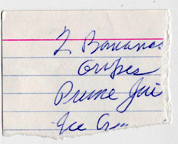 2 Bananas
Grapes
Prune Jui
Ice Cre